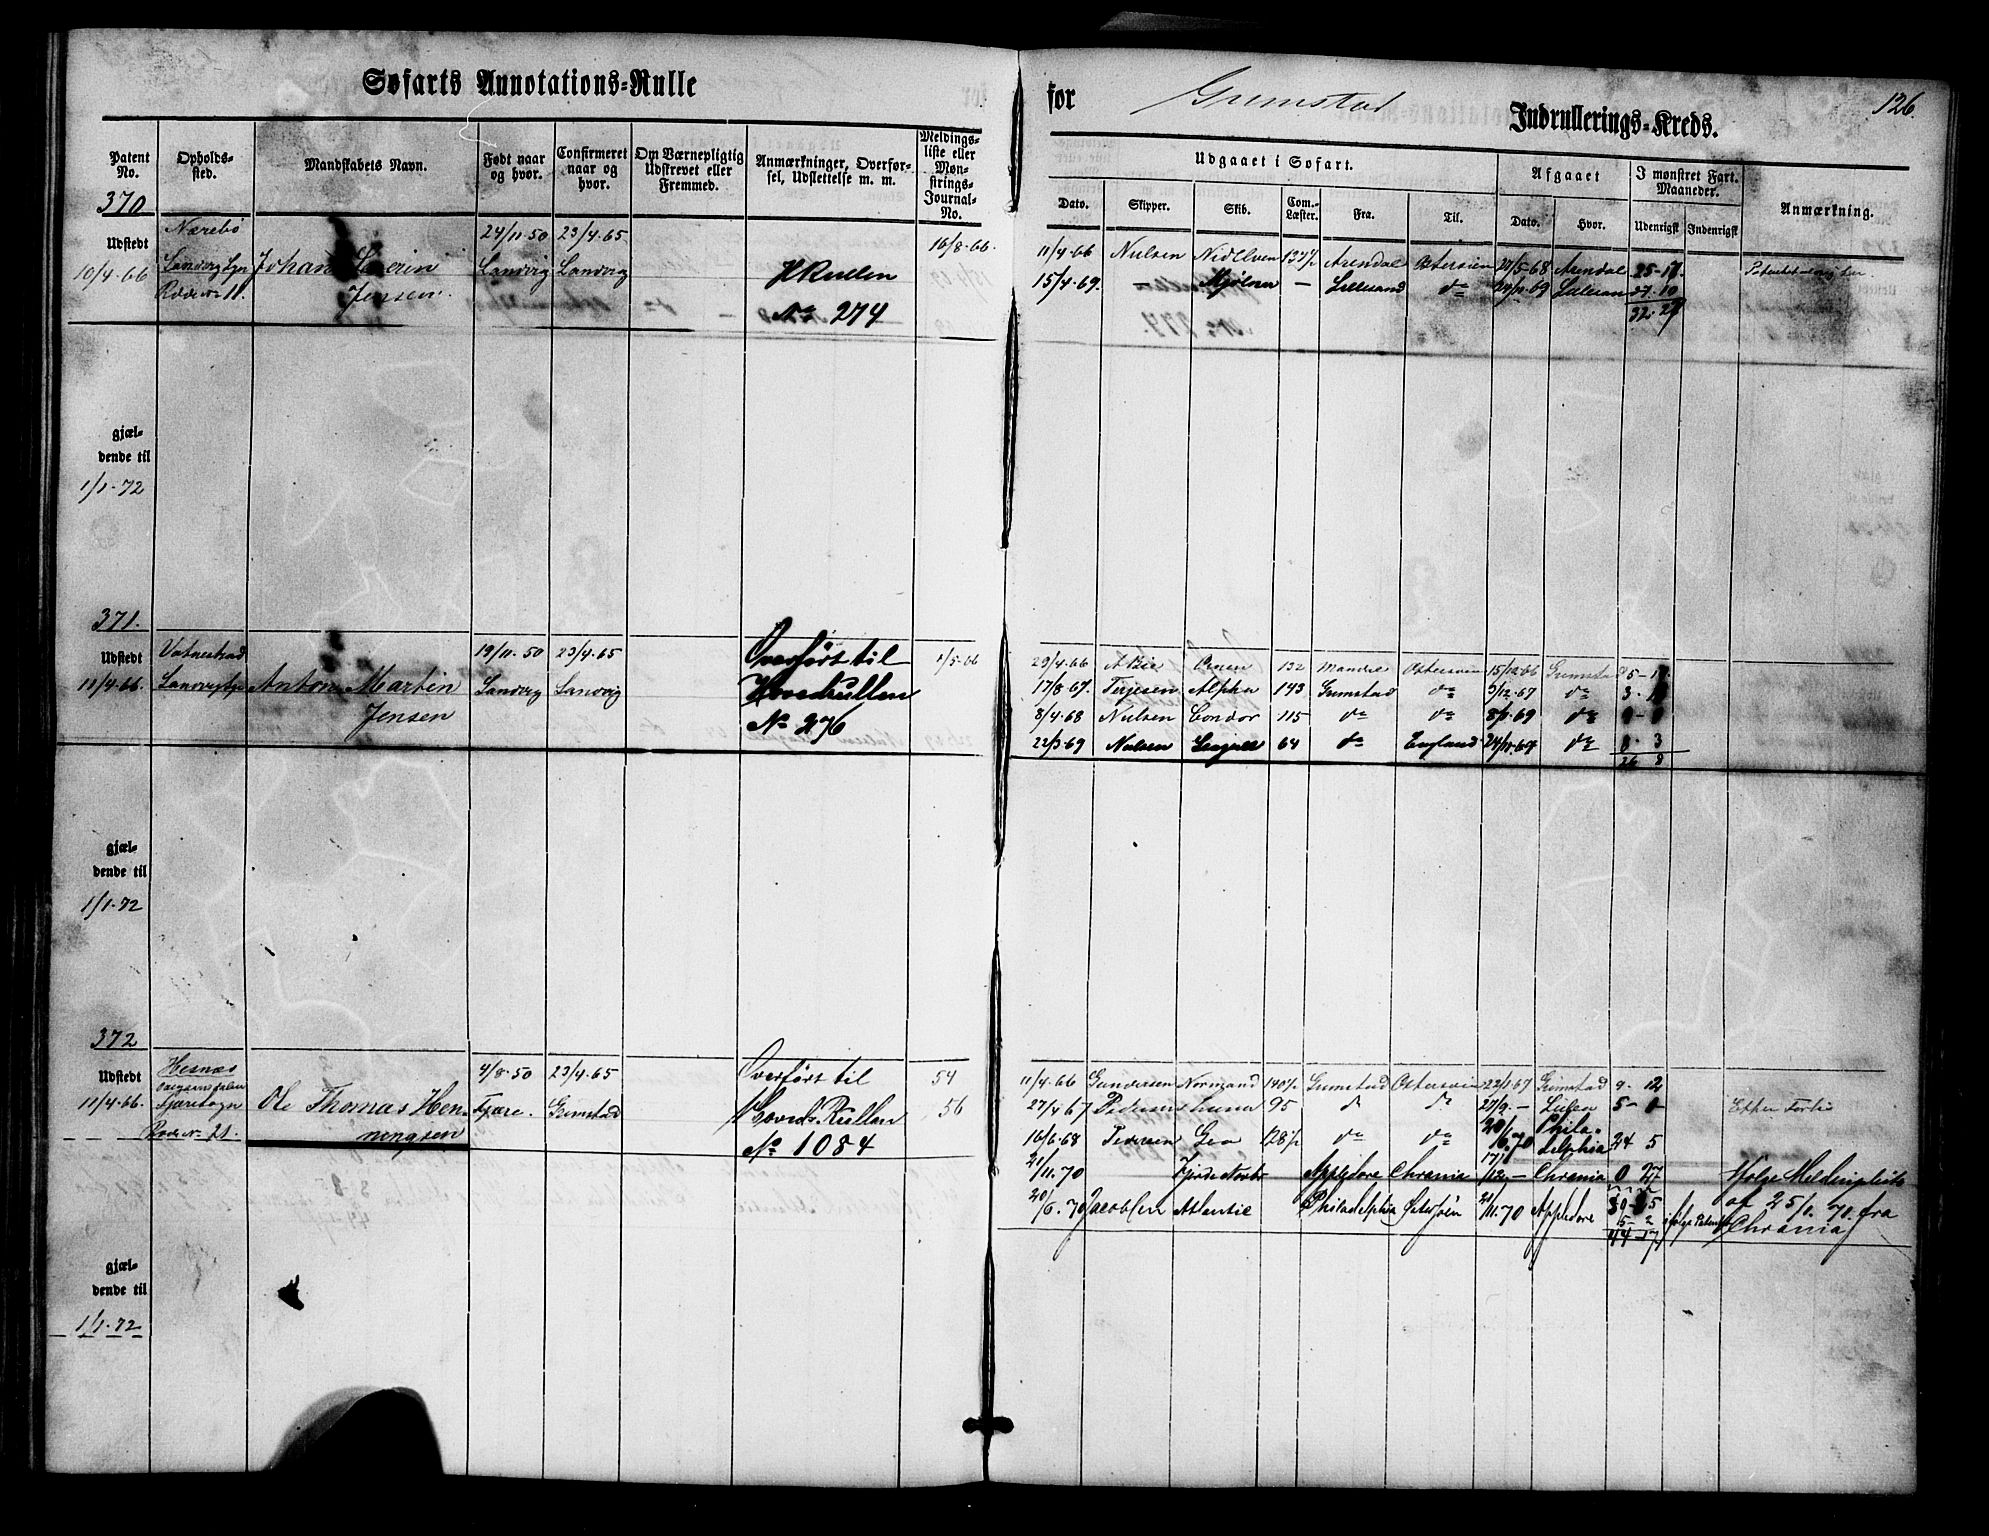 Søfarts Annotations-Rulle
for Grimstad Indrullerings-Kreds.
126.
Patent No.
Opholds-sted.
Mandskabets Navn.
Født naar og hvor.
Confirmeret naar og hvor.
Om Værnepligtig Udskrevet eller Fremmed.
Anmærkninger, Overførsel, Udslettelse m. m.
Meldingsliste eller Mønstrings-Journal-No.
Udgaaet i Søfart.
Dato.
Skipper.
Skib.
Com.-Læster.
Fra.
Til.
Afgaaet
Dato.
Hvor.
I mønstret Fart. Maaneder.
Udenrigsk
Indenrigsk
Anmærkning.
370
Udstedt
10/4-66
gjæl-
dende til
1/1-72
Nærebö
Landvig Sgn
Rode No 11.
Johan Severin
Jensen
24/11-50 23/4-65
Landvig Landvig
HRullen
No 274
16/8-66
11/4-66 Nielsen Nidelven 137½ Arendal Østersøen 20/5-68 Arendal 25-17.
15/4-69. — Mjölner — Lillesand do 24/11-69 Lillesand 27. 10
32. 27
371.
Udstedt
11/4-66.
gjæl-
dende til
1/1-72
Vatnestrad
Landvig Sgn
Anton Martin
Jensen
19/11-50 23/4-65
Landvig Landvig
Overført til
Hovedrullen
No 276
1/5-66
29/4-66 A Bie Ørnen 132 Mandal Østersøen 15/12-66 Grimstad
17/8-67. Terjesen Alpha 143 Grimstad do 9/12-67 do
8/4-68 Nielsen Condor 115 do do 8/1-69 do
22/3-69 Nielsen 64 do England 24/11-69 do 8. 3
26 8
372
Udstedt
11/4-66.
gjæl-
dende til
1/1-72
Hesnæs
Fjæresogn
Rode No 21.
Ole Thomas Hen-
ningsen
4/8-50 23/4-65
Fjære. Grimstad
Overført til
Hoveds Rullen
No 1084
54
56
11/4-66 Gundersen Normand 140½ Grimstad Østersøen 22/1-67 Grimstad 9. 12
27/4 67 Pedersen Luna 95 do do 27/9.- 5-0
16/6-68 Pedersen Geo 128½ do do 20/6.70 Phila-
delphia 24 5
21/11.70 Appledore Chrania 17/12.- Chrania 0 27
20/6.70 Jacobsen Atlantic Philadelphia 21/11.70 Appledore
5-2
44-17
ifølge Patentet
Ifølge Meldingsliste
af 25/1. 71. fra
Chrania